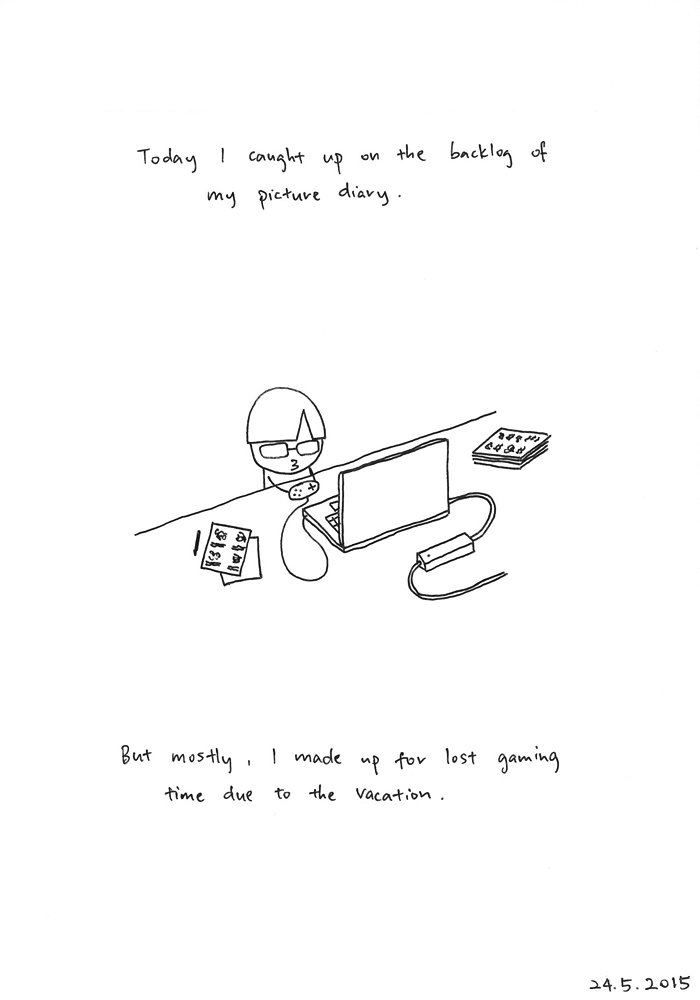 Today I caught up on the backlog of
my picture diary.
But mostly, I made up for lost gaming
time due to the vacation.
24.5.2015